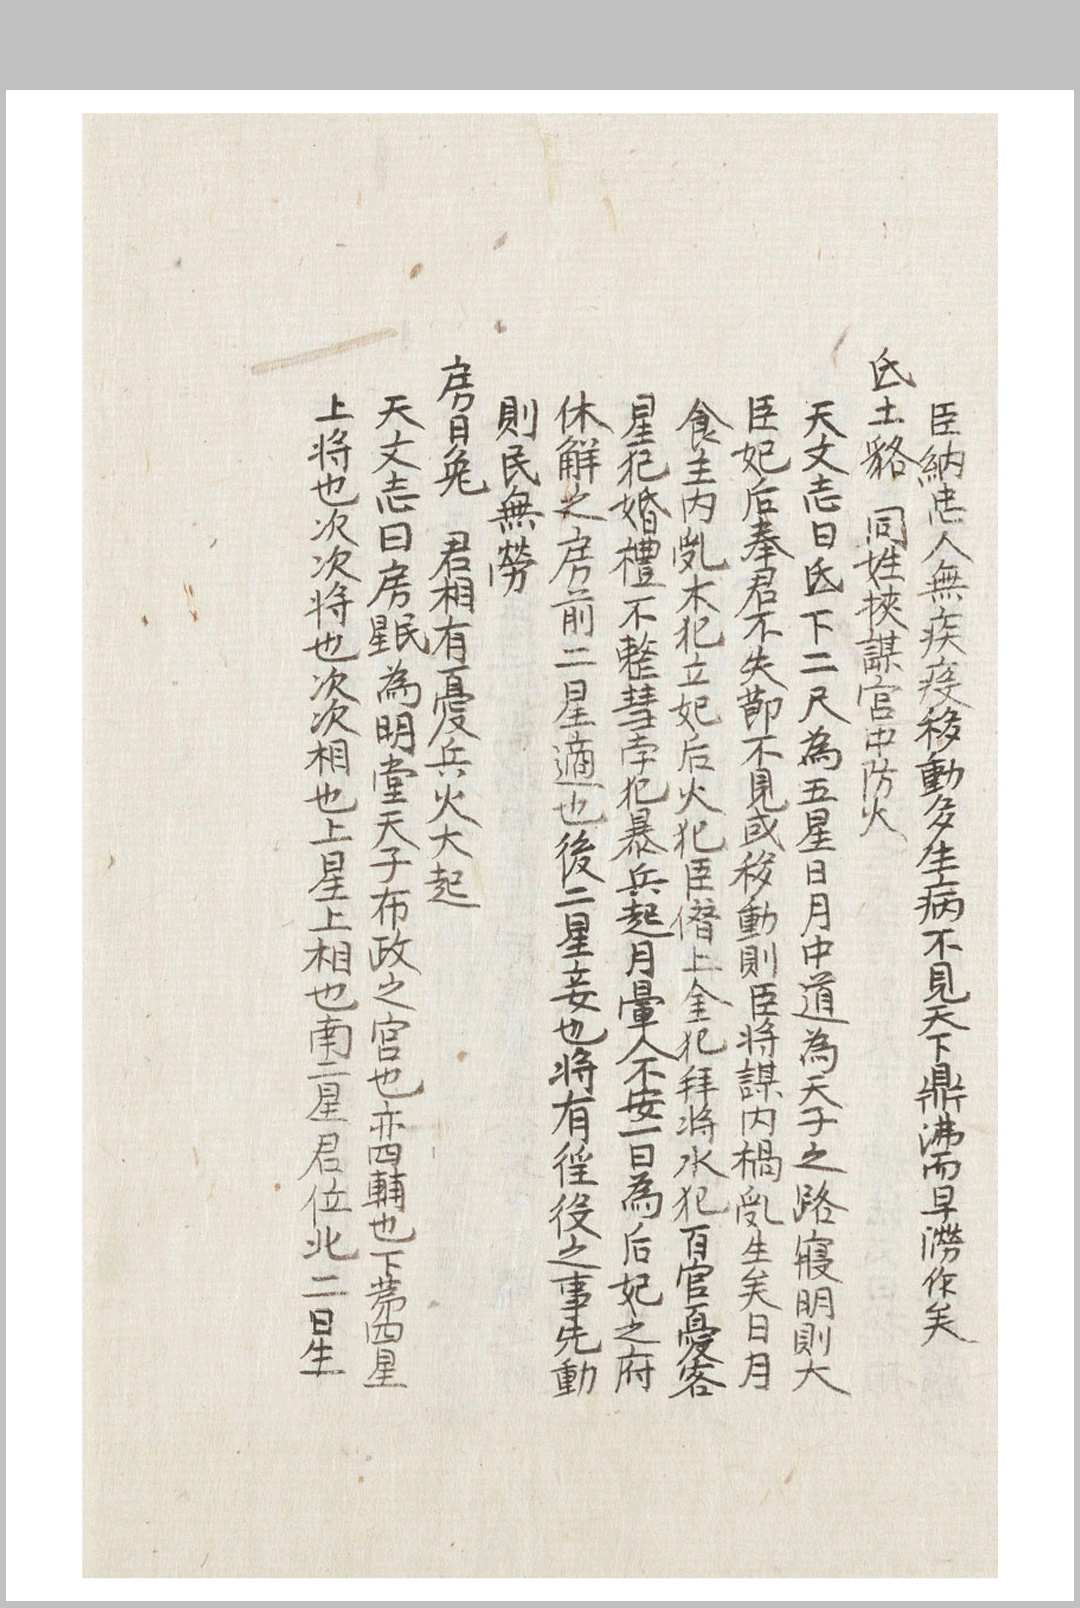 臣納忠人無疾疫移動多生病不見天下鼎沸而旱澇作矣
氐土貉　同姓挾謀宮中防火
天文志曰氐下二尺為五星日月中道為天子之路寢明則大
臣妃后奉君不失節不見或移動則臣將謀内禍亂生矣日月
食主内亂木犯立妃后火犯臣僭上金犯拜將水犯百官憂客
星犯婚禮不整彗孛犯暴兵起月暈人不安一曰為后妃之府
休解之房前二星適也後二星妾也將有徭役之事先動
則民無勞
房日兔　君相有憂兵火大起
天文志曰房星民為明堂天子布政之宮也亦四輔也下第四星
上將也次次將也次次相也上星上相也南二星君位北二星